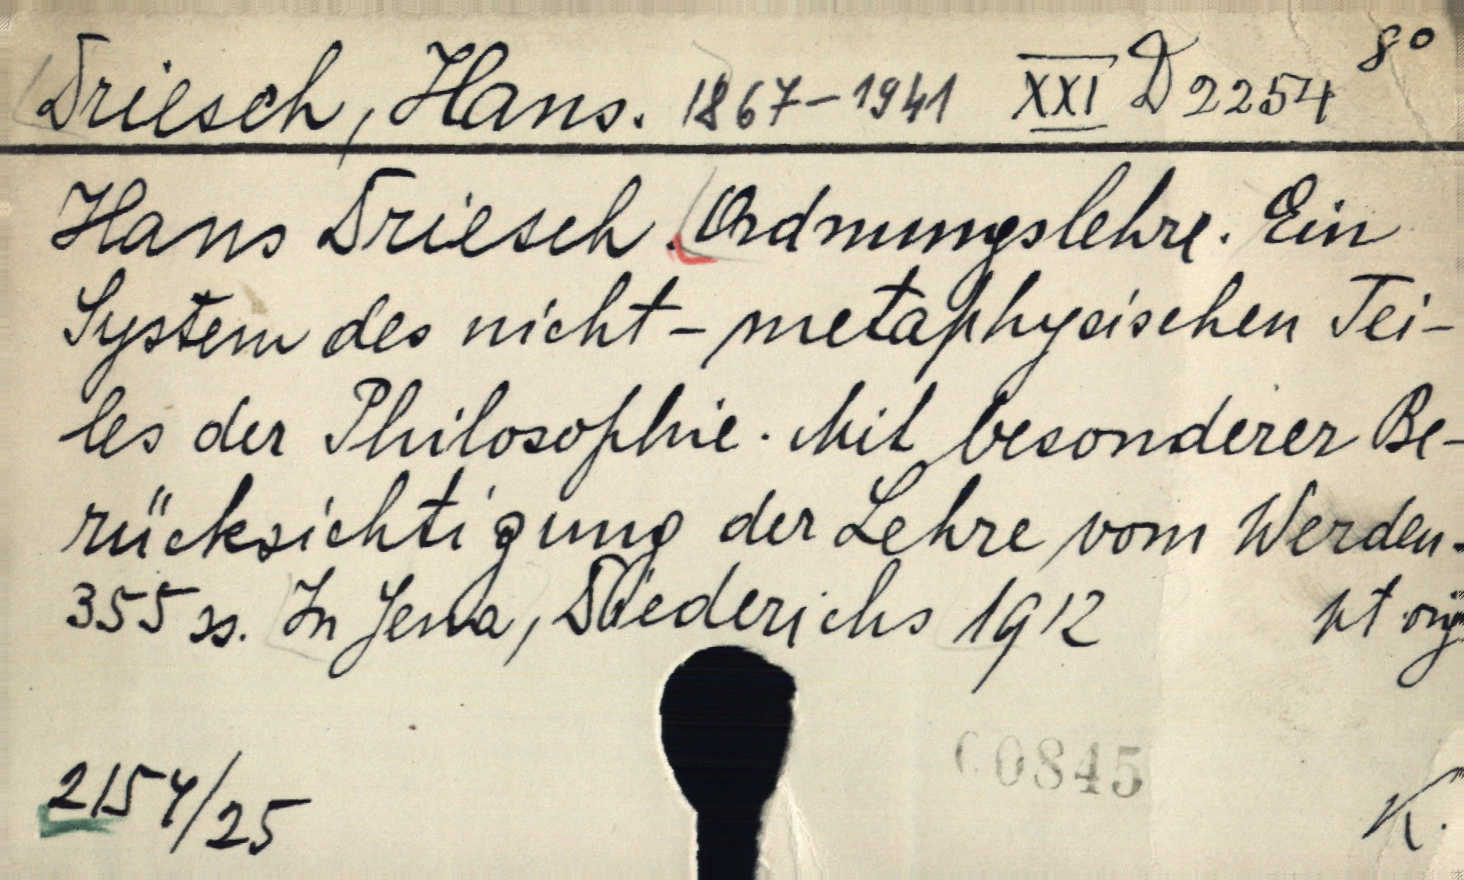 Driesch, Hans. 1867-1941 XXI D 2254 8°
Hans Driesch. Ordnungslehre. Ein
System des nicht-metaphysischen Tei-
les der Philosophie. Mit besonderer Be-
rücksichtigung der Lehre vom Werden.
355 ss. In Jena, Diederichs 1912
2154/25
00845
K.